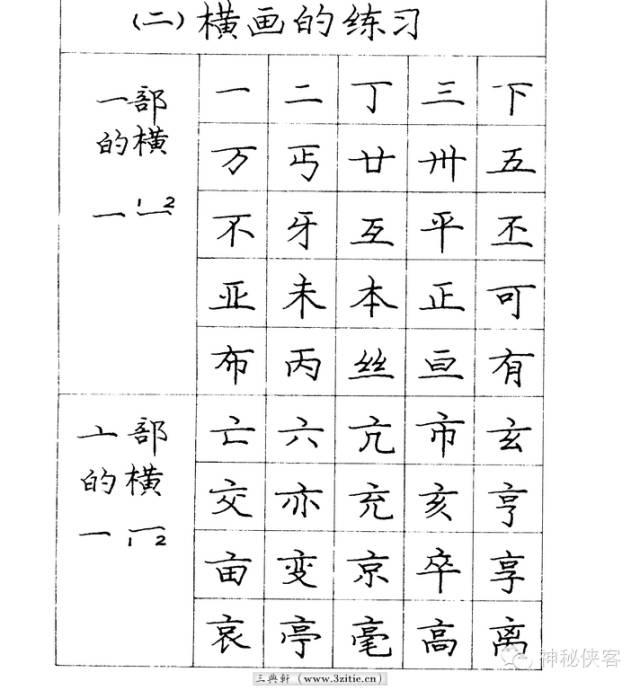 (二)横画的练习
一部的横
一 1 2
一 二 丁 三 下
万 丐 廿 卅 五
不 牙 互 平 丕
亚 未 本 正 可
布 丙 丝 亘 有
亠部的横
一 1 2
亡 六 亢 市 玄
交 亦 充 亥 亨
亩 变 京 卒 享
哀 亭 毫 高 离
三典轩 (www.3zitie.cn)
神秘侠客